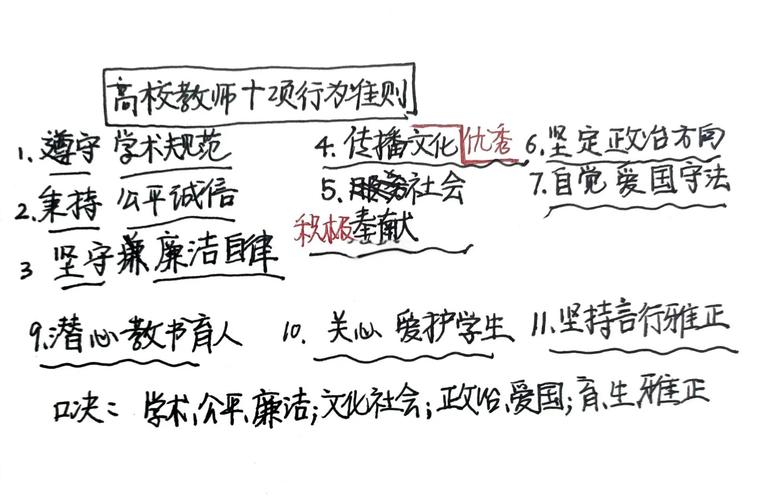 高校教师十项行为准则
1. 遵守 学术规范
2. 秉持 公平诚信
3 坚守 廉洁自律
4. 传播文化 优秀
5. 社会
积极奉献
6. 坚定政治方向
7. 自觉 爱国守法
9. 潜心教书育人
10. 关心 爱护学生
11. 坚持言行雅正
口决: 学术,公平,廉洁;文化社会;政治,爱国;育,生,雅正